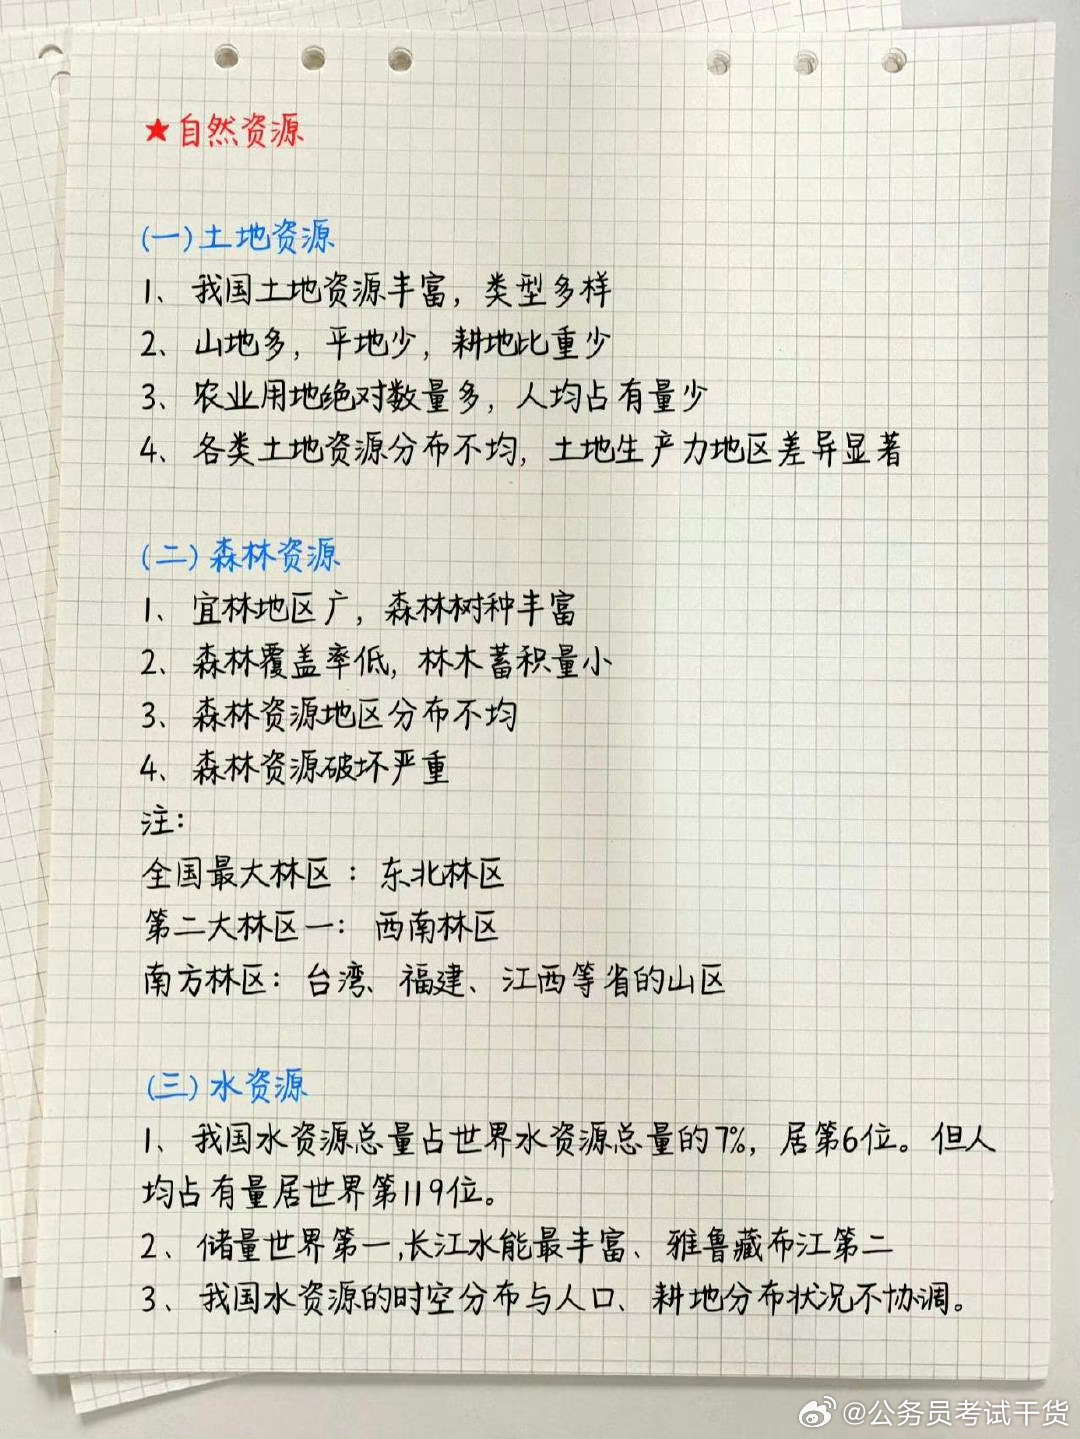 ★自然资源
(一)土地资源
1、我国土地资源丰富，类型多样
2、山地多，平地少，耕地比重少
3、农业用地绝对数量多，人均占有量少
4、各类土地资源分布不均，土地生产力地区差异显著
(二)森林资源
1、宜林地区广，森林树种丰富
2、森林覆盖率低，林木蓄积量小
3、森林资源地区分布不均
4、森林资源破坏严重
注：
全国最大林区：东北林区
第二大林区一：西南林区
南方林区：台湾、福建、江西等省的山区
(三)水资源
1、我国水资源总量占世界水资源总量的7%，居第6位。但人
均占有量居世界第119位。
2、储量世界第一，长江水能最丰富、雅鲁藏布江第二
3、我国水资源的时空分布与人口、耕地分布状况不协调。
@公务员考试干货